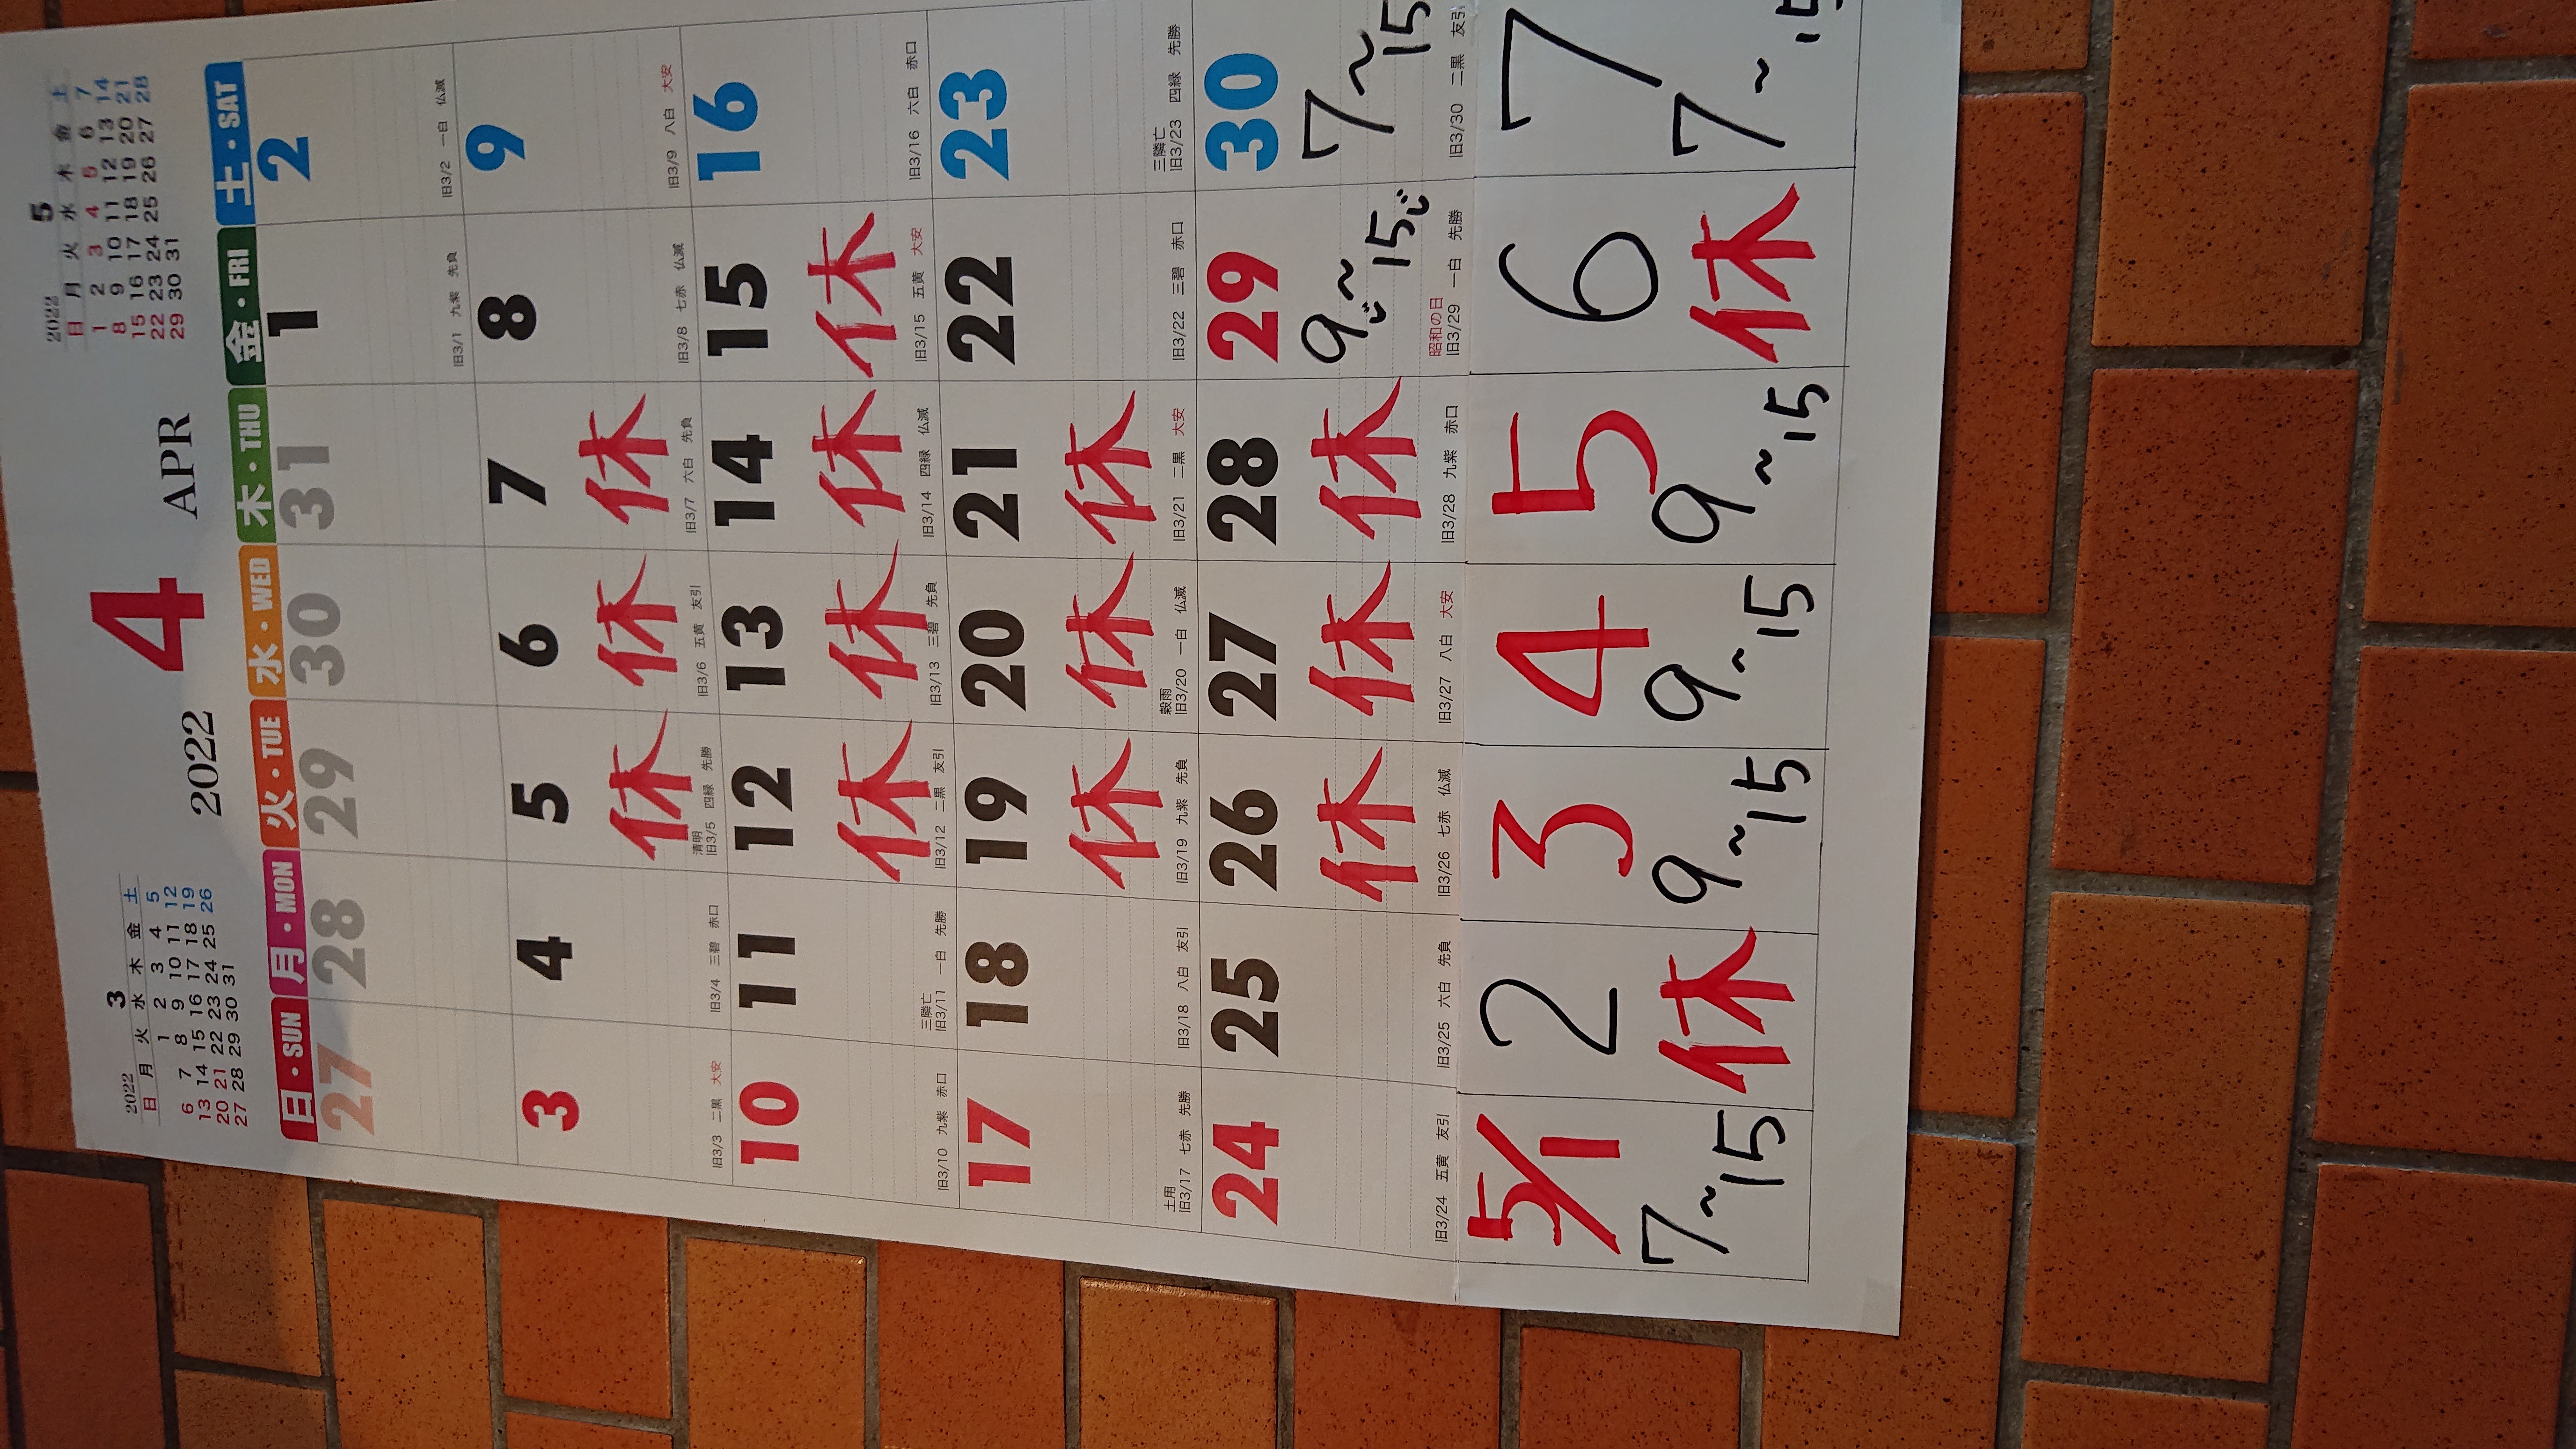 2022 3
日 月 火 水 木 金 土
1 2 3 4 5
6 7 8 9 10 11 12
13 14 15 16 17 18 19
20 21 22 23 24 25 26
27 28 29 30 31
2022 4 APR
2022 5
日 月 火 水 木 金 土
1 2 3 4 5 6 7
8 9 10 11 12 13 14
15 16 17 18 19 20 21
22 23 24 25 26 27 28
29 30 31
日・SUN 月・MON 火・TUE 水・WED 木・THU 金・FRI 土・SAT
27 28 29 30 31 1 2
旧3/1 九紫 先負 旧3/2 一白 仏滅
3 4 5 6 7 8 9
休 休 休
清明
旧3/3 二黒 大安 旧3/4 三碧 赤口 旧3/5 四緑 先勝 旧3/6 五黄 友引 旧3/7 六白 先負 旧3/8 七赤 仏滅 旧3/9 八白 大安
10 11 12 13 14 15 16
休 休 休 休
三隣亡
旧3/10 九紫 赤口 旧3/11 一白 先勝 旧3/12 二黒 友引 旧3/13 三碧 先負 旧3/14 四緑 仏滅 旧3/15 五黄 大安 旧3/16 六白 赤口
17 18 19 20 21 22 23
休 休 休
土用 穀雨 三隣亡
旧3/17 七赤 先勝 旧3/18 八白 友引 旧3/19 九紫 先負 旧3/20 一白 仏滅 旧3/21 二黒 大安 旧3/22 三碧 赤口 旧3/23 四緑 先勝
24 25 26 27 28 29 30
休 休 休 9じ~15じ 7~15
昭和の日
旧3/24 五黄 友引 旧3/25 六白 先負 旧3/26 七赤 仏滅 旧3/27 八白 大安 旧3/28 九紫 赤口 旧3/29 一白 先勝 旧3/30 二黒 友引
5/1 2 3 4 5 6 7
7~15 休 9~15 9~15 9~15 休 7~15